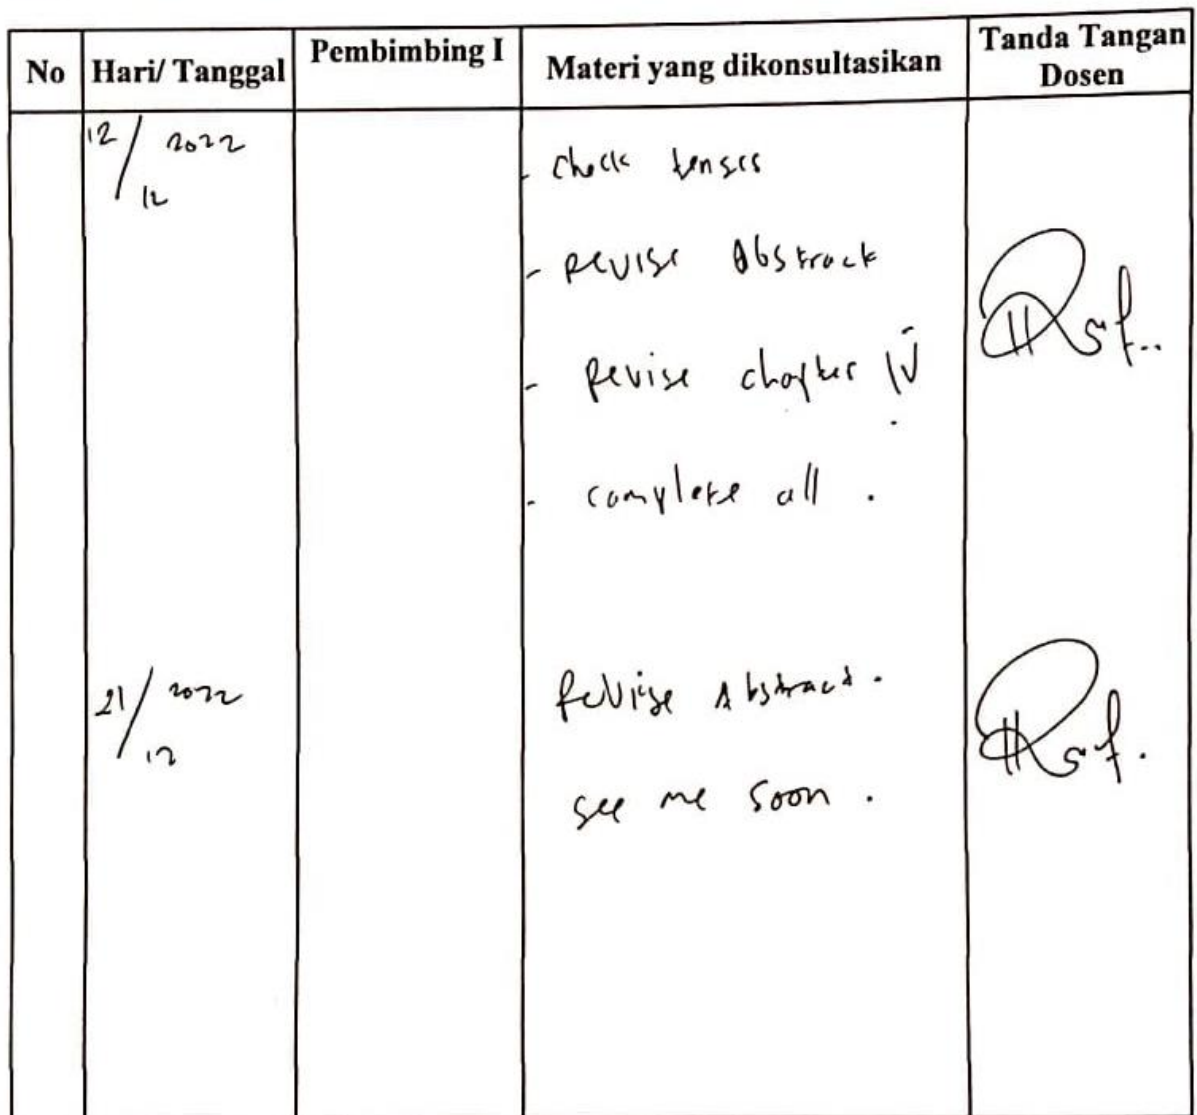 No Hari/ Tanggal Pembimbing I Materi yang dikonsultasikan Tanda Tangan Dosen
12/12 2022
- check tenses
- Revise Abstrack
- Revise chapter IV
- complete all .
21/12 2022
Revise Abstract .
see me soon .